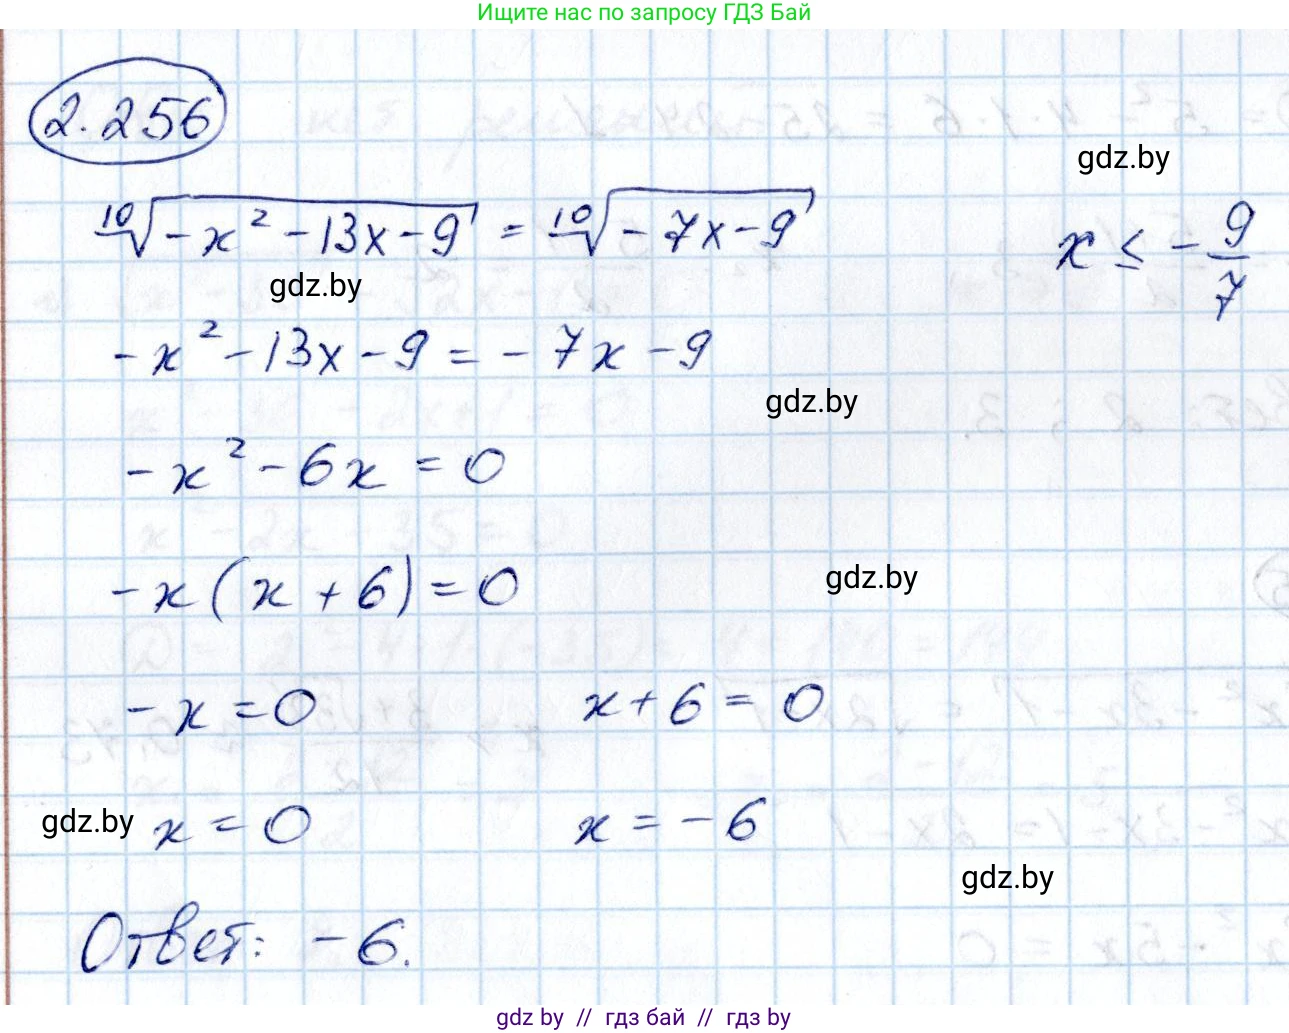 Ищите нас по запросу ГДЗ Бай
2.256
gdz.by
¹⁰√(-x² - 13x - 9) = ¹⁰√(-7x - 9)    x ≤ -9/7
gdz.by
-x² - 13x - 9 = -7x - 9
gdz.by
-x² - 6x = 0
-x(x + 6) = 0
gdz.by
-x = 0    x + 6 = 0
gdz.by
x = 0    x = -6
gdz.by
Ответ: -6.
gdz.by // гдз бай // гдз by